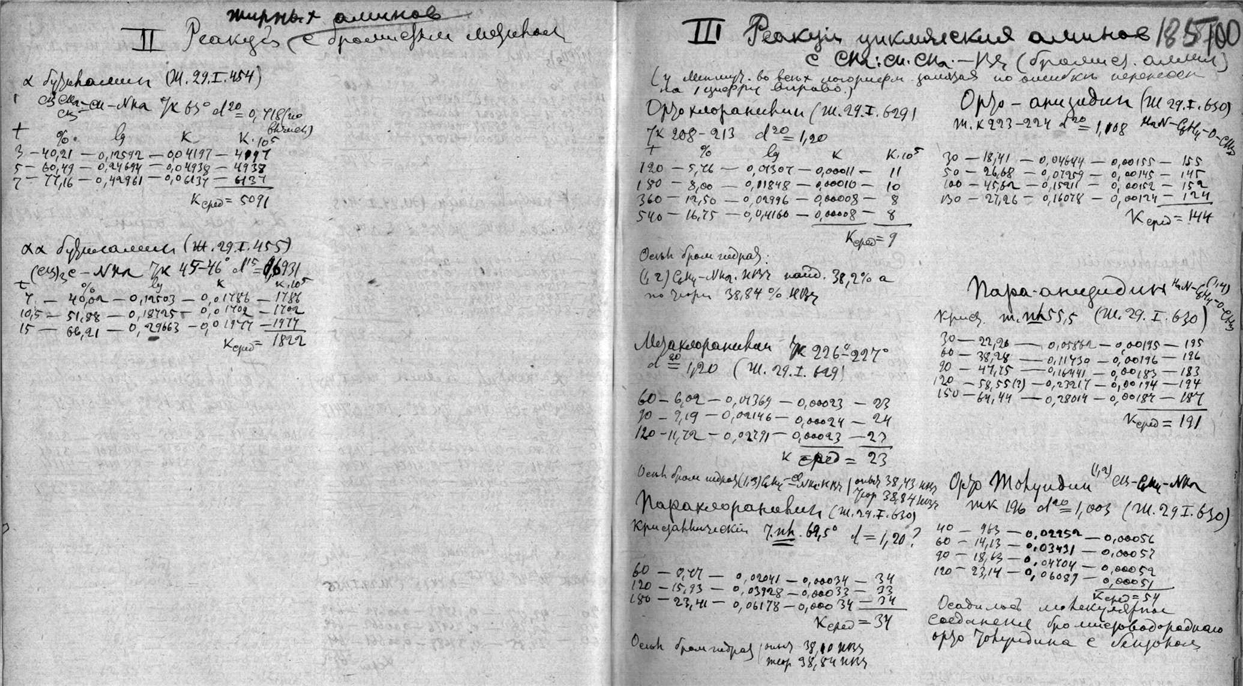 жирных аминов
II Реакция с бромистым
α бутиламин (Ж. 29. I. 454)
т/к 63° d²⁰ = 0,718
t % lg K K·10⁵
3 — 40,21 — 0,12592 — 0,04197 — 4197
5 — 60,49 — 0,24694 — 0,04938 — 4938
7 — 77,16 — 0,42961 — 0,06137 — 6137
Kсред = 5091
αα бутиламин (Ж. 29. I. 455)
(CH₃)₃C—NH₂ т/к 45—46° d¹⁵
t % lg K K·10⁵
7 — 40,02 — 0,12503 — 0,01786 — 1786
10,5 — 51,88 — 0,18725 — 0,01702 — 1702
15 — 66,21 — 0,29663 — 0,01977 — 1977
Kсред = 1822
III Реакция циклических аминов
с CH₂:CH.CH₂—Br (бромист. аллил)
на 1 цифру вправо)
Орто хлоранилин (Ж. 29. I. 629)
т/к 208 – 213 d²⁰ = 1,20
t % lg K K·10⁵
120 — 5,76 — 0,01307 — 0,00011 — 11
180 — 8,00 — 0,01848 — 0,00010 — 10
360 — 12,50 — 0,02996 — 0,00008 — 8
540 — 16,75 — 0,04160 — 0,00008 — 8
Kсред = 9
Осн. бром гидрат.
(1,2) C₆H₄—NH₂. HBr найд. 38,2% а
по теории 38,84 % HBr
Метахлоранилин т/к 226°–227°
d²⁰ = 1,20 (Ж. 29. I. 629)
60 — 6,02 — 0,01369 — 0,00023 — 23
90 — 9,19 — 0,02146 — 0,00024 — 24
120 — 11,72 — 0,02791 — 0,00023 — 23
K сред = 23
опыт 38,43 HBr
теор 38,84 HBr
Парахлоранилин (Ж. 29. I. 630)
Кристаллический т. пл. 69,5° d = 1,20?
60 — 9,47 — 0,02041 — 0,00034 — 34
120 — 15,93 — 0,03928 — 0,00033 — 33
180 — 23,41 — 0,06178 — 0,00034 — 34
Kсред = 34
Осн. бромгидрат опыт 38,10 HBr
теор 38,84 HBr
Орто – анизидин (Ж. 29. I. 630)
т. к 223–224 d²⁰ = 1,108 H₂N—C₆H₄—O—CH₃
30 — 18,41 — 0,04644 — 0,00155 — 155
50 — 26,68 — 0,07259 — 0,00145 — 145
100 — 45,62 — 0,15211 — 0,00152 — 152
130 — 0,16078 — 0,00124 — 124
Kсред = 144
Пара-анизидин H₂N—C₆H₄—O—CH₃ (1,4)
Крист. т. пл 55,5 (Ж. 29. I. 630)
30 — 22,26 — 0,05862 — 0,00195 — 195
60 — 38,28 — 0,11430 — 0,00196 — 196
90 — 47,75 — 0,16441 — 0,00183 — 183
120 — 58,55(?) — 0,23217 — 0,00194 — 194
150 — 64,44 — 0,28014 — 0,00187 — 187
Kсред = 191
Орто Толуидин (1,2) CH₃—C₆H₄—NH₂
тк 196 d²⁰ = 1,003 (Ж. 29. I. 630)
40 — 963 — 0,02252 — 0,00056
60 — 14,13 — 0,03431 — 0,00057
90 — 18,63 — 0,04704 — 0,00052
120 — 23,14 — 0,06089 — 0,00051
Kсред = 54
молекулярное
соединение бромистоводородного
орто Толуидина с